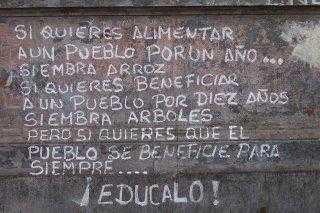 SI QUIERES ALIMENTAR
A UN PUEBLO POR UN AÑO...
SIEMBRA ARROZ
SI QUIERES BENEFICIAR
A UN PUEBLO POR DIEZ AÑOS
SIEMBRA ARBOLES
PERO SI QUIERES QUE EL
PUEBLO SE BENEFICIE PARA
SIEMPRE....
¡EDUCALO!